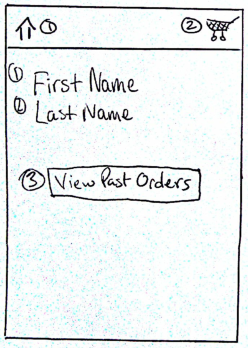 ① ②
① First Name
② Last Name
③ View Past Orders